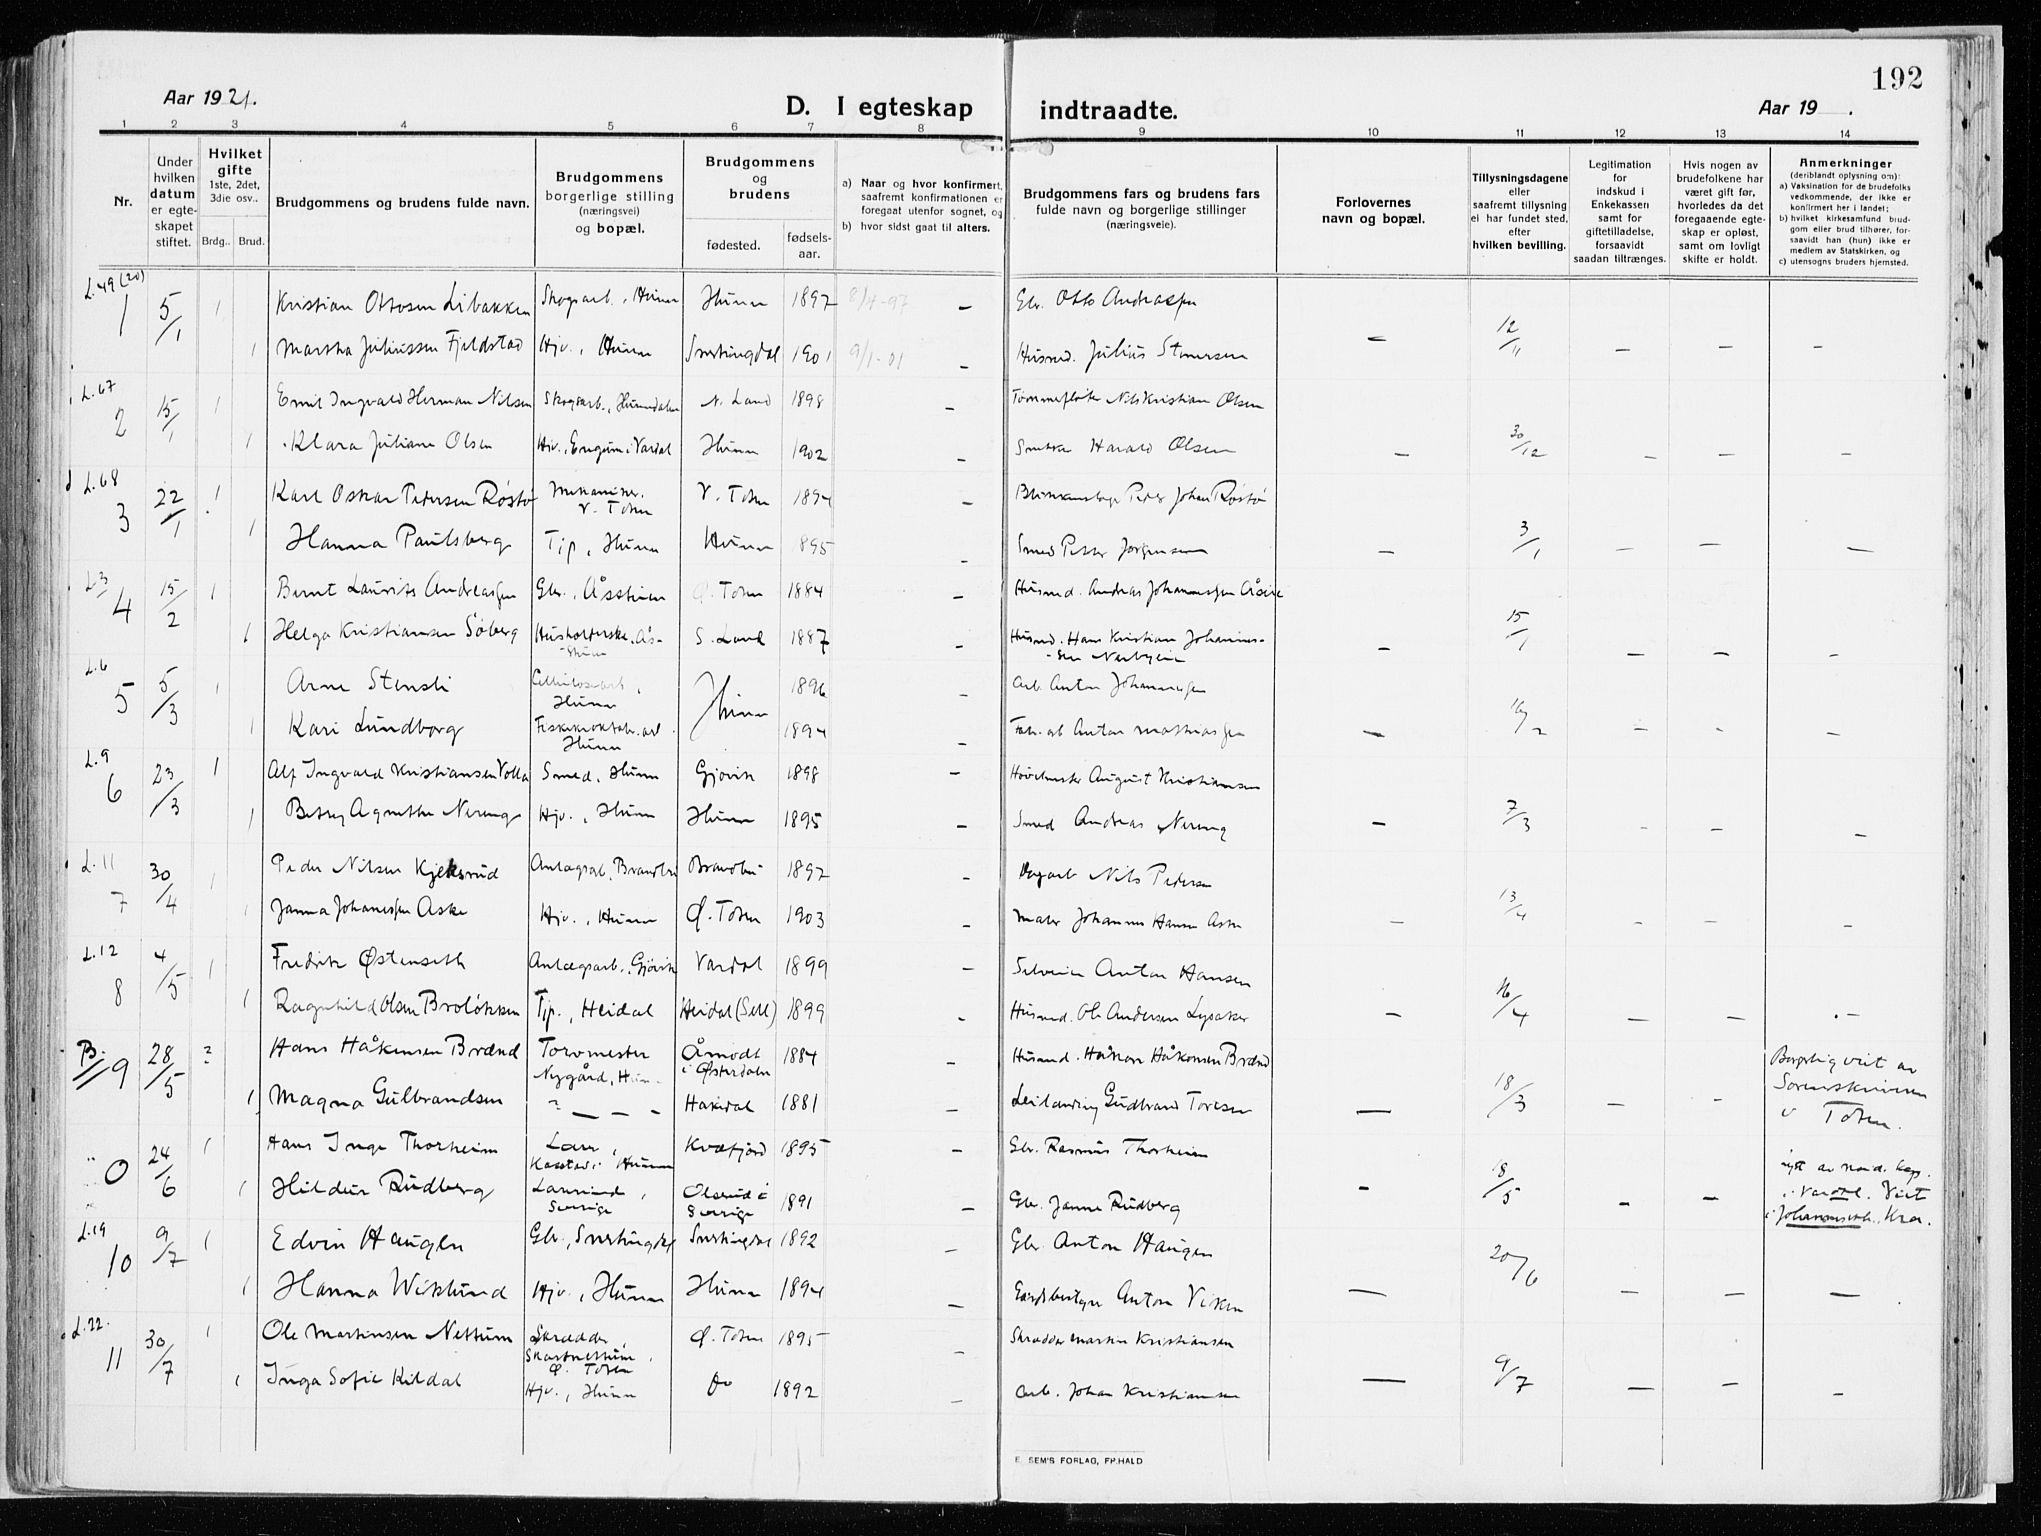 192
Aar 1921.
D. I egteskap indtraadte.
Aar 19 .
1 2 3 4 5 6 7 8 9 10 11 12 13 14
Nr.
Under hvilken datum er egte-skapet stiftet.
Hvilket gifte
1ste, 2det, 3die osv..
Brdg.. Brud.
Brudgommens og brudens fulde navn.
Brudgommens
borgerlige stilling
(næringsvei)
og bopæl.
Brudgommens
og
brudens
fødested.
fødsels-
aar.
a) Naar og hvor konfirmert,
saafremt konfirmationen er
foregaat utenfor sognet, og
b) hvor sidst gaat til alters.
Brudgommens fars og brudens fars
fulde navn og borgerlige stillinger
(næringsveie).
Forlovernes
navn og bopæl.
Tillysningsdagene
eller
saafremt tillysning
ei har fundet sted,
efter
hvilken bevilling.
Legitimation
for
indskud i
Enkekassen
samt for
giftetilladelse,
forsaavidt
saadan tiltrænges.
Hvis nogen av
brudefolkene har
været gift før,
hvorledes da det
foregaaende egte-
skap er opløst,
samt om lovlig
skifte er holdt.
Anmerkninger
(deriblandt oplysning om):
a) Vaksination for de brudefolks
vedkommende, der ikke er
konfirmert her i landet;
b) hvilket kirkesamfund brud-
gom eller brud tilhører, for-
saavidt han (hun) ikke er
medlem av Statskirken, og
c) utensogns bruders hjemsted.
L. 49 (20)
1 5/1 1 Kristian Ottosen Libakken Skogsarb., Hunn Hunn 1897 8/4-97 — Gbr. Otto Andreassen
1 Martha Juliussen Fjeldstad Hjv., Hunn Snertingdal 1901 9/1-01 — Husmd. Julius Stenersen — 12/11 — — —
L. 67
2 15/1 1 Emil Ingvald Herman Nilsen Skogsarb., Hunndalen N. Land 1898 — Tømmerfløter Nils Kristian Olsen
1 Klara Juliane Olsen Hjv., Engum i Vardal Hunn 1902 — Snekker Harald Olsen — 30/12 — — —
L. 68
3 22/1 1 Karl Oskar Pedersen Røstø Mekaniker, V. Toten V. Toten 1894 — Blikkenslager Peder Johan Røstø
1 Hanna Paulsberg Tjp., Hunn Hunn 1895 — Smed Petter Jørgensen — 3/1 — — —
L. 3
4 15/2 1 Bernt Laurits Andreassen Gbr., Åsstuen Ø. Toten 1884 — Husmd. Andreas Johannessen
1 Helga Kristiansen Søberg Husholderske, Ås-stuen S. Land 1887 — Husmd. Hans Kristian Johannes-sen — 15/1 — — —
L. 6
5 5/3 1 Arne Stensli Cellulosearb., Hunn Hunn 1896 — Arb. Anton Johannessen
1 Kari Lundborg Fiskekrokfabr. arb. Hunn 1894 — Fabr. arb Anton Mathiassen — — — —
L. 9
6 23/3 1 Alf Ingvald Kristiansen Volla Smed, Hunn Gjøvik 1898 — Høvelmester August Kristiansen
1 Betsy Agnethe Nereng Hjv., Hunn Hunn 1895 — Smed Andreas Nereng — 7/3 — — —
L. 11
7 30/4 1 Peder Nilsen Kjeksrud Anlægsarb., Brandbu Brandbu 1897 — Nils Pedersen
1 Janna Johannessen Aske Hjv., Hunn Ø. Toten 1903 — Maler Johannes Hansen Aske — 13/4 — — —
L. 12
8 4/5 1 Fredrik Østenseth Anlægsarb., Gjøvik Vardal 1899 — Selveier Anton Hansen
1 Ragnhild Olsen Broløkken Tjp., Heidal Heidal (Sell) 1899 — Husmd. Ole Andersen Lysaker — 16/4 — — —
B.
9 28/5 2 Hans Håkensen Brænd Torvmester Nygård, Hunn Åmodt i Østerdalen 1884 Husmd. Håkon Håkonsen Brænd
1 Magna Gulbrandsen — — — Hakadal 1881 — Leilænding Gudbrand Toresen — 18/3 — — Borgerlig viet av Sorenskriveren v Toten.
0 24/6 1 Hans Inge Thorheim Lærer, Kasstad i Hunn Kvæfjord 1895 — Gbr. Rasmus Thorheim
1 Hildur Rudberg Lærerinde, Sverige i Sverige 1891 — Gbr. Janne Rudberg — 18/5 — — i Vardal. Viet i Johanneskk., Kra.
L. 19
10 9/7 1 Edvin Haugen Gbr., Snertingdal Snertingdal 1892 — Gbr. Anton Haugen
1 Hanna Wiklund Hjv., Hunn Hunn 1894 — Gårdsbestyrer Anton Viken — 20/6 — — —
L. 22.
11 30/7 1 Ole Martinsen Nettum Skrædder, Ø. Toten Ø. Toten 1895 — Skrædder Martin Kristiansen
1 Inga Sofie Kildal Hjv., Hunn do 1892 — Arb. Johan Kristiansen — 9/7 — — —
E. SEM'S FORLAG, FR.HALD